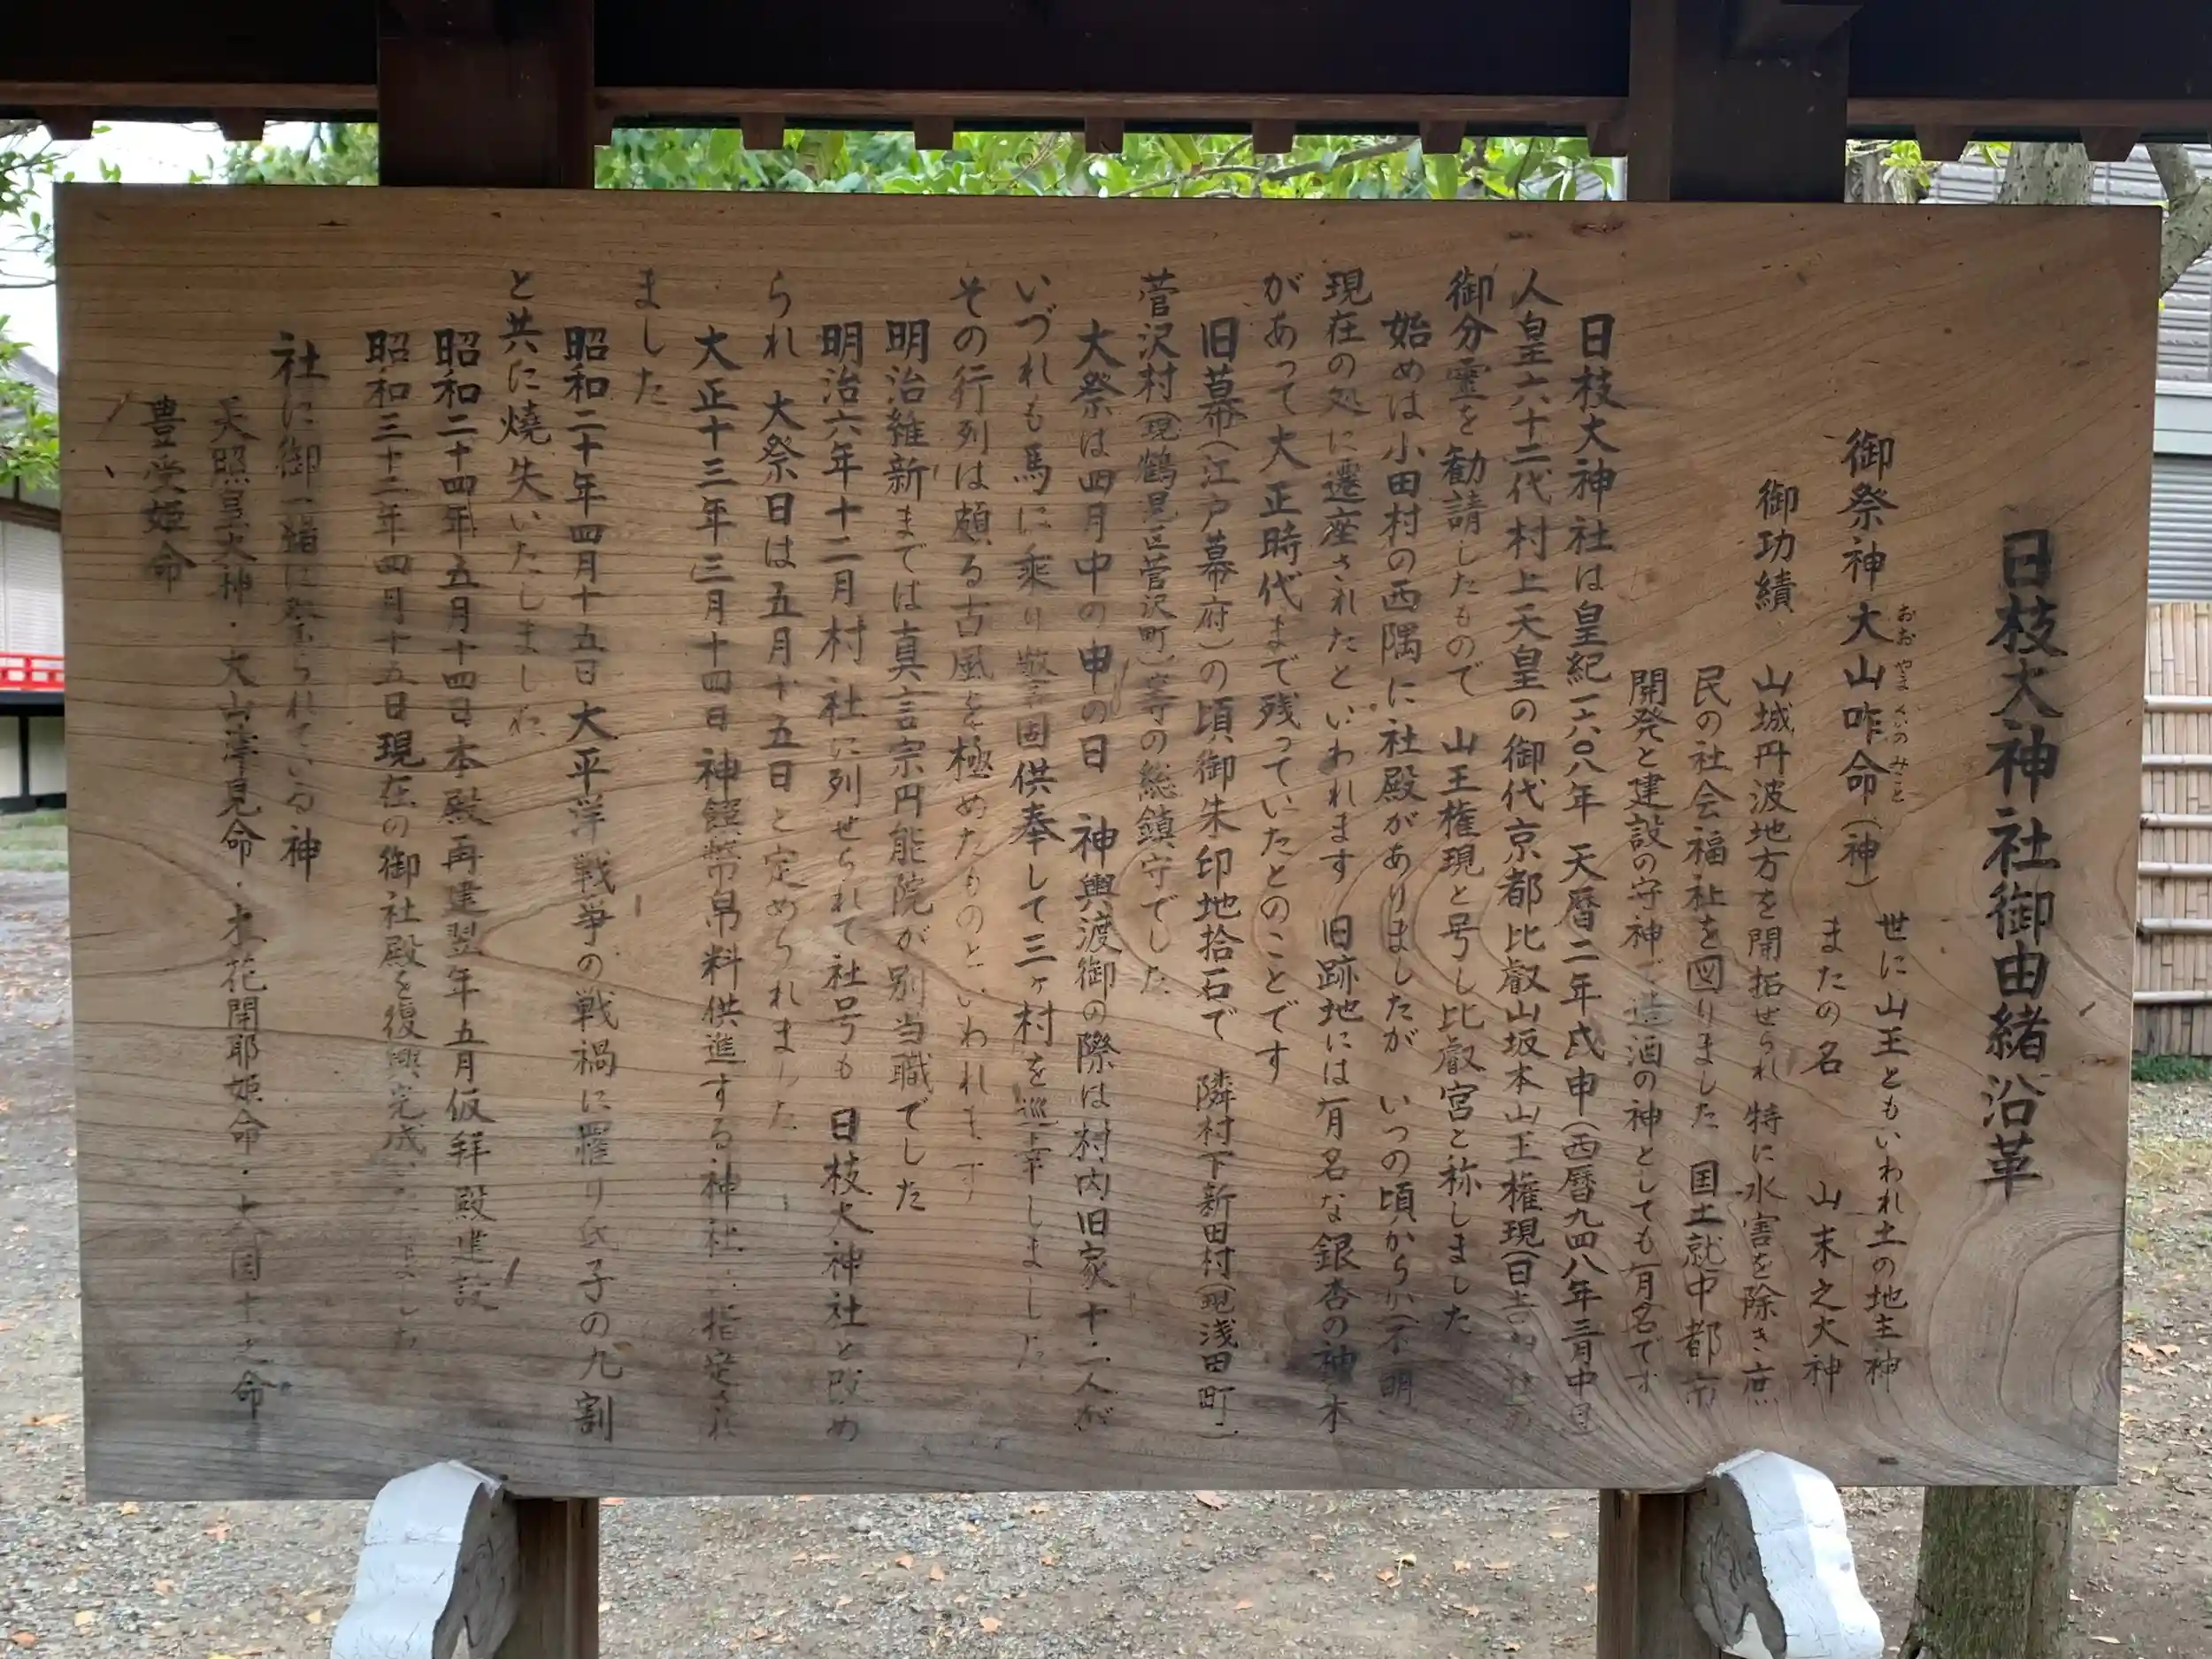 日枝大神社御由緒沿革
御祭神 大山咋命(神) 世に山王ともいわれ土の地主神
おおやまくいのみこと
またの名 山末之大神
御功績 山城丹波地方を開拓せられ 特に水害を除き庶
民の社会福祉を図りました 国土就中都市
開発と建設の守神で造酒の神としても有名です
日枝大神社は皇紀一六〇八年 天暦二年戊申(西暦九四八年三月中日
人皇六十二代村上天皇の御代京都比叡山坂本山王権現(日吉
御分霊を勧請したもので 山王権現と号し比叡宮と称しました
始めは小田村の西隅に社殿がありましたが いつの頃からか(不明
現在の処に遷座されたといわれます 旧跡地には有名な銀杏の神木
があって大正時代まで残っていたとのことです
旧幕(江戸幕府)の頃御朱印地拾石で 隣村下新田村(現浅田町)
菅沢村(現鶴見区菅沢町)等の総鎮守でした
大祭は四月中の申の日 神輿渡御の際は村内旧家十二人が
いづれも馬に乗り警固供奉して三ヶ村を巡幸しました
その行列は頗る古風を極めたものといわれます
明治維新までは真言宗円能院が別当職でした
明治六年十二月村社に列せられて社号も 日枝大神社と改め
られ 大祭日は五月十五日と定められました
大正十三年三月十四日神饌幣帛料供進する神社に指定され
ました
昭和二十年四月十五日大平洋戦争の戦禍に罹り氏子の九割
と共に焼失いたしました
昭和二十四年五月十四日本殿再建翌年五月仮拝殿建設
昭和三十二年四月十五日現在の御社殿を復興完成 ました
社に御一緒に祭られている神
天照皇大神・大山津見命・木花開耶姫命・大国主之命
豊受姫命